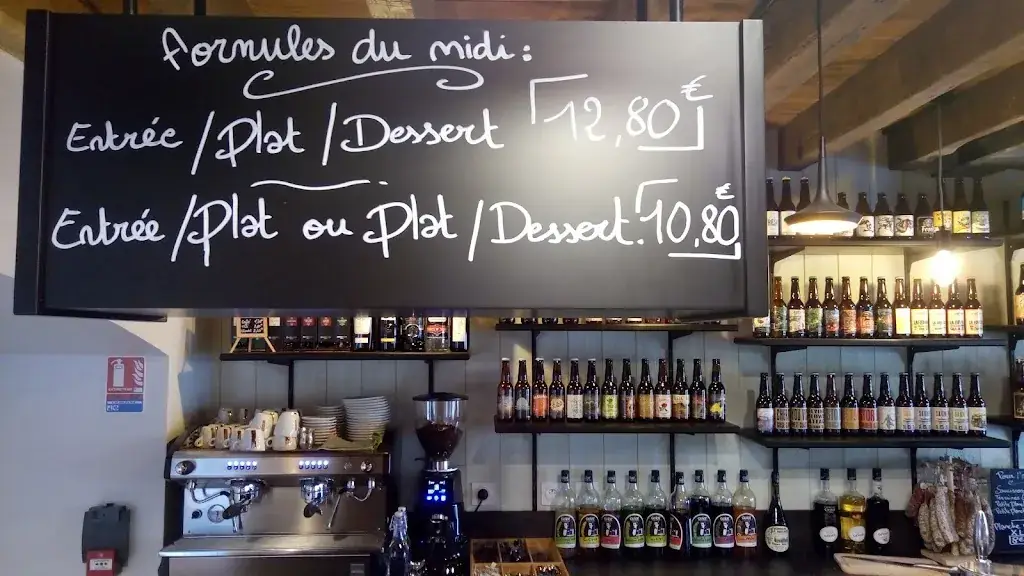 formules du midi :
Entrée / Plat / Dessert 12,80€
Entrée / Plat ou Plat / Dessert. 10,80€